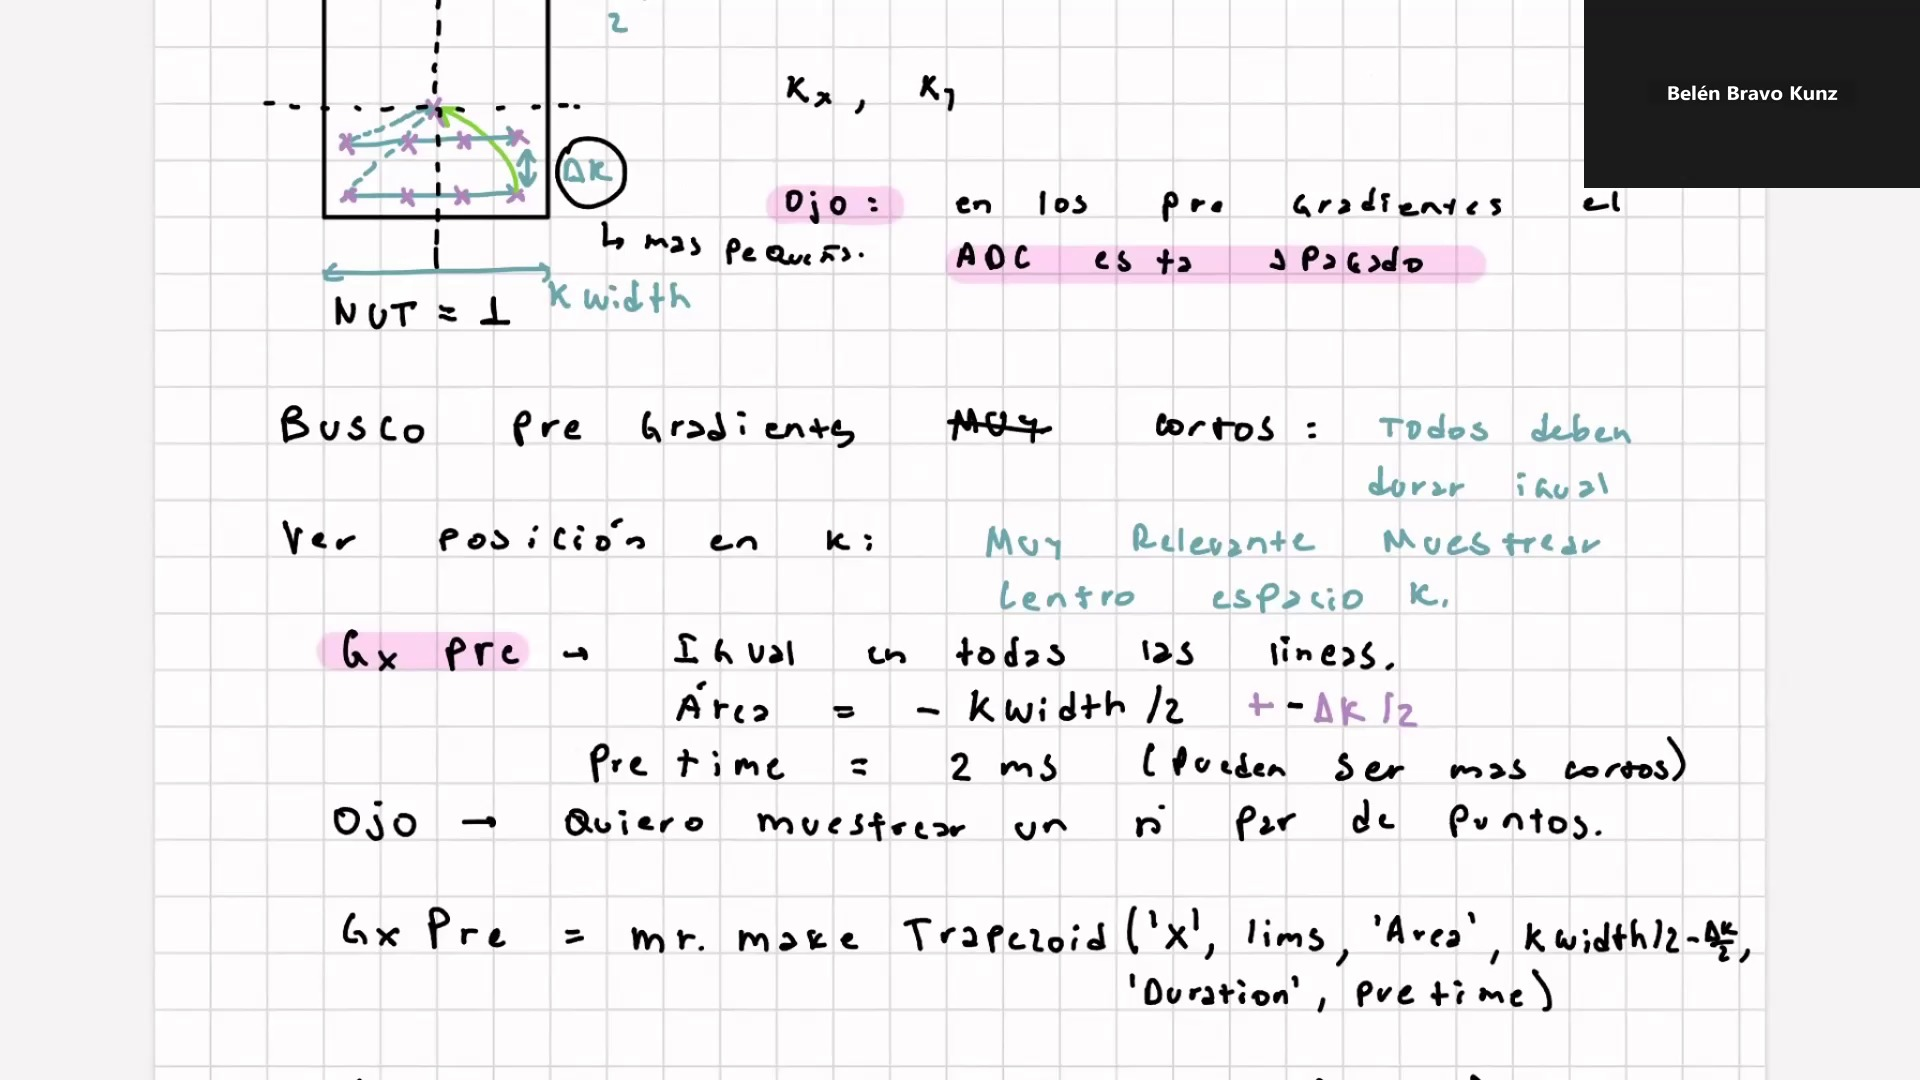 2
Kx , Ky
Belén Bravo Kunz
ΔK
Ojo : en los pre Gradientes el
↳ mas pequeño.
ADC esta apagado
K width
NUT = 1
Busco pre Gradientes Muy cortos : Todos deben
durar igual
Ver posición en k : Muy Relevante Muestrear
Centro espacio K.
Gx pre → Igual en todas las lineas.
Área = - Kwidth /2 + - ΔK /2
Pre time = 2 ms (pueden ser mas cortos)
Ojo → Quiero muestrear un n̄ par de puntos.
Gx Pre = mr. make Trapezoid ('X', lims, 'Area', Kwidth/2 - ΔK/2,
'Duration', pretime)